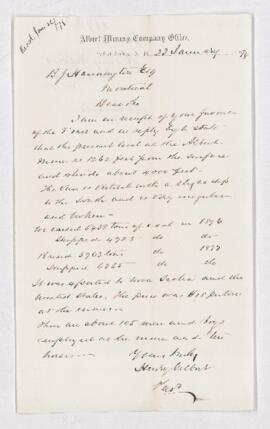 Recd Jan 24/78
Albert Mining Company Office,
22 January 78
B J Harrington Esq
Montreal
Dear Sir
I am in receipt of your favour
of the inst and in reply beg to state
that the present level at the Albert
Mine is 1262 feet from the surface
and the about 4000 feet.
The vein is vertical with a slight dip
to the South and is very irregular
and broken
We raised 6438 tons of coal in 1876
Shipped 4783 do do
Raised 5763 tons do 1877
Shipped 6265 do
It was exported to Nova Scotia and the
United States. The price was $18 per ton
at the mines
There are about 105 men and boys
employed at the mine and
horses
Yours truly
Henry Gilbert